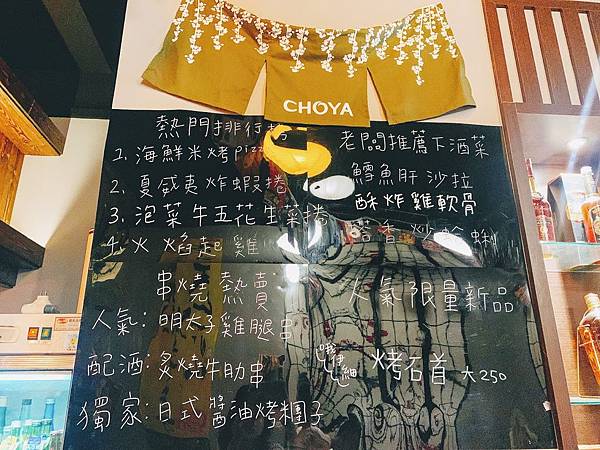 CHOYA
熱門排行榜
1. 海鮮米烤pizz
2. 夏威夷炸蝦捲
3. 泡菜牛五花生菜捲
4. 火焰起雞
串燒熱賣
人氣：明太子雞腿串
配酒：炙燒牛肋串
獨家：日式醬油烤糰子
老闆推薦下酒菜
鱈魚肝沙拉
酥炸雞軟骨
塔香炒蛤蜊
火氣限量新品
烤石首 大250